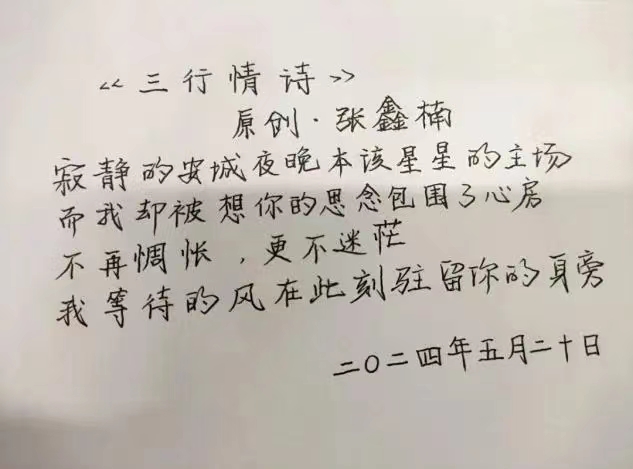 《三行情诗》
原创·张鑫楠
寂静的安城夜晚本该星星的主场
而我却被想你的思念包围了心房
不再惆怅，更不迷茫
我等待的风在此刻驻留你的身旁
二〇二四年五月二十日